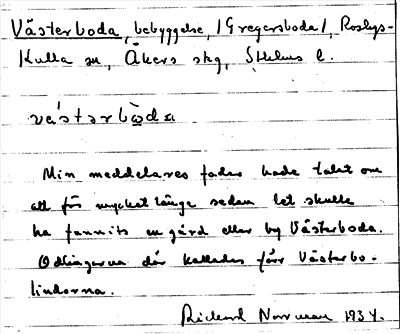 Västerboda, bebyggelse, /Gregersboda/, Roslags-
Kulla sn, Åkers skg, Sthlms l.
västərbòda
Min meddelares fader hade talat om
att för mycket länge sedan det skulle
ha funnits en gård eller by Västerboda.
Odlingarna där kallades förr Västerbo-
lindorna.
Rickard Norrman 1934.